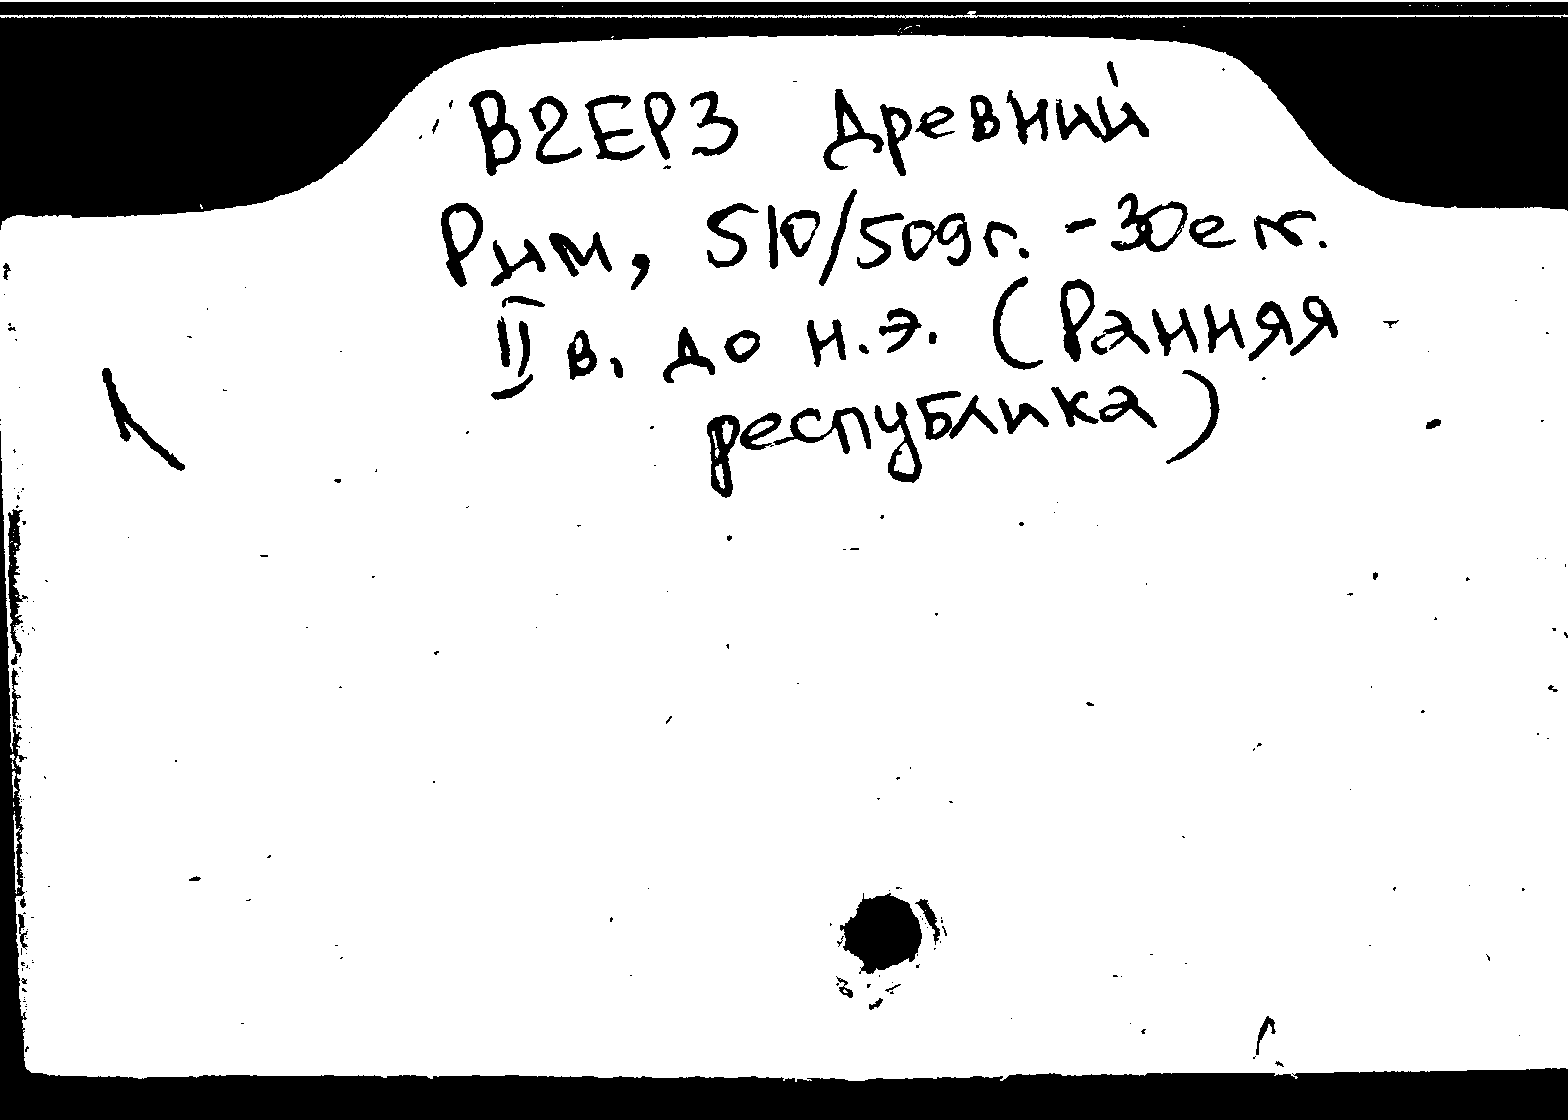 В2ЕР3 Древний
Рим, 510/509г. - 30е гг.
II в. до н.э. (Ранняя
республика)